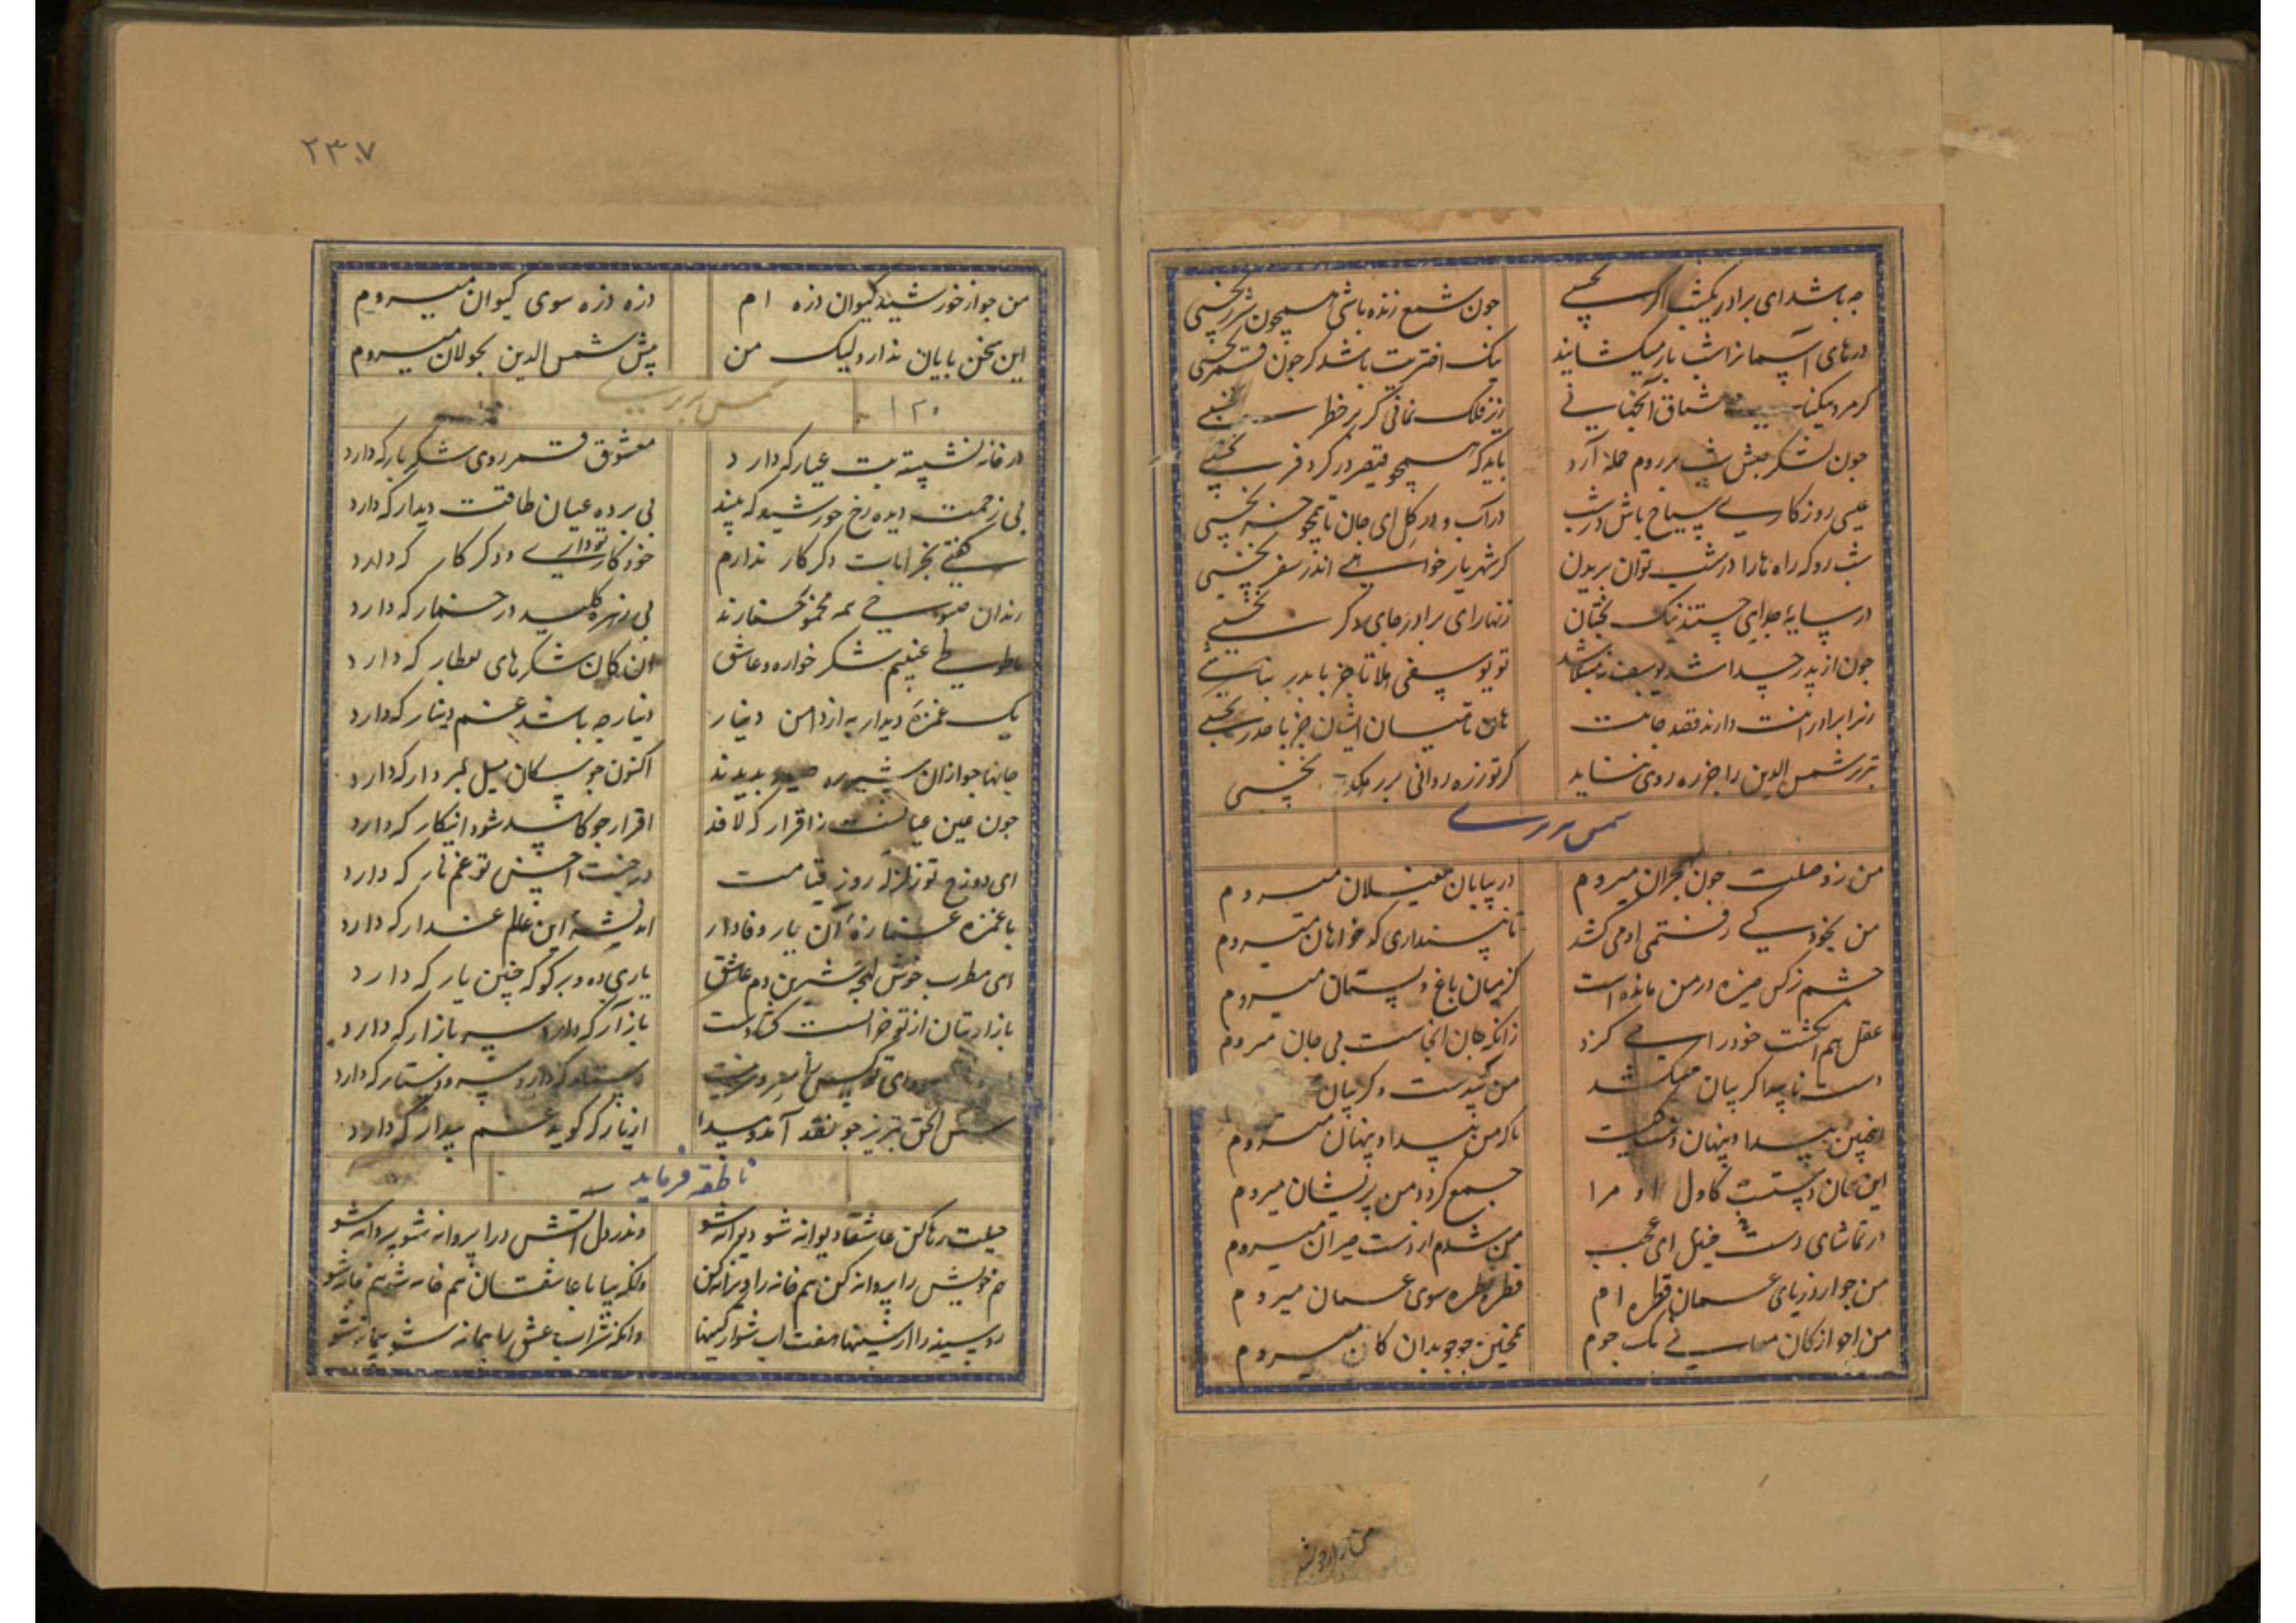 چه باشد ای برادر یکشب اگر نخسبی
چون شمع زنده باشی همچون شرر نخسبی
درهای آسمانرا شب باز میکشایند
نیک اخترت باشد کر چون قمر نخسبی
کر مرد
مشتاق آنجهانی
زیر فلک نمانی کر بر خطر نخسبی
چون لشکر حبش شب بر روم حمله آرد
باید که همچو قیصر در کر و فر نخسبی
عیسی روزکاری سیاح باش در شب
در آب و در کل ای جان تا همچو خر نخسبی
شب رو که راه ها را در شب توان بریدن
کر شهر یار خواهی اندر سفر نخسبی
در سایهٔ خدایی خسبند نیک بختان
زنهار ای برادر جای دکر نخسبی
چون از پدر جدا شد یوسف نه مبتلا شد
تو یوسفی هلا تا جز با پدر نباشی
زیرا برادرانت دارند قصد جانت
هان تا میان ایشان جز با حذر نخسبی
تبریز شمس الدین را جز ره روی نشاید
کر تو زره روانی بر ره کذر نخسبی
شمس تبریزی
من زوصلت چون بهجران میروم
در بیابان مغیلان میروم
من بخود کی رفتمی او می کشد
تا نپنداری که خواهان میروم
چشم نرکس خیره در من مانده است
کز میان باغ و بستان میروم
عقل هم انکشت خود را می کزد
زانکه جان اینجاست بی جان میروم
دست ناپیدا کریبان میکشد
من پی دست و کریبان
اینچنین پیدا و پنهان دست کیست
تا که من پیدا و پنهان میروم
این همان دستست کاول او مرا
جمع کرد و من پریشان میروم
در تماشای چنین دست ای عجب
من شدم از دست حیران میروم
من چو از دریای عمان قطره ام
قطره قطره سوی عمان میروم
من چو از کان معانی یک جوم
همچنین جو جو بدان کان میروم
من
۲۳۰۷
من چو از خورشید کیوان ذره ام
ذره ذره سوی کیوان میروم
این سخن پایان ندارد لیک من
پیش شمس الدین بجولان میروم
شمس تبریزی
۱۲۰
در خانه نشسته بت عیار که دارد
معشوق قمر روی شکر بار که دارد
بی زحمت دیده رخ خورشید که بیند
بی پرده عیان طاقت دیدار که دارد
کفتی بخرابات دکر کار ندارم
خود کار تو داری و دکر کار که دارد
رندان صبوحی همه مخمور خمارند
بی زهره کلید در خمار که دارد
طوطی غنیم شکر خواره و عاشق
آن کان شکرهای بقنطار که دارد
یک غمزهٔ دیدار به از دامن دینار
دینار چه باشد غم دینار که دارد
جانها چو از آن شیر ره صید بدیدند
اکنون چو سکان میل بمردار که دارد
چون عین عیانست ز اقرار که لافد
اقرار چو کاسد شود انکار که دارد
ای دوزخ تو زلزلهٔ روز قیامت
در جنت احسن تو غم نار که دارد
با غمزه غمازهٔ آن یار وفادار
اندیشهٔ این عالم غدار که دارد
ای مطرب خوش لهجه شیرین دم عاشق
یاری ده و بر کو که چنین یار که دارد
بازار بتان از تو خرابست کجا دست
بازار که دارد سر بازار که دارد
دستار که دارد سر و دستار که دارد
شمس الحق تبریز چو نقد آمد و پیدا
از پار که کوید غم پیدار که دارد
ناطقه فرماید
حیلت رها کن عاشقا دیوانه شو دیوانه شو
وندر دل آتش درآ پروانه شو پروانه شو
هم خویش را بیگانه کن هم خانه را ویرانه کن
وانکه بیا با عاشقان هم خانه شو هم خانه شو
رو سینه را از سینها هفت آب شو از کینها
وانکه شراب عشق را پیمانه شو پیمانه شو